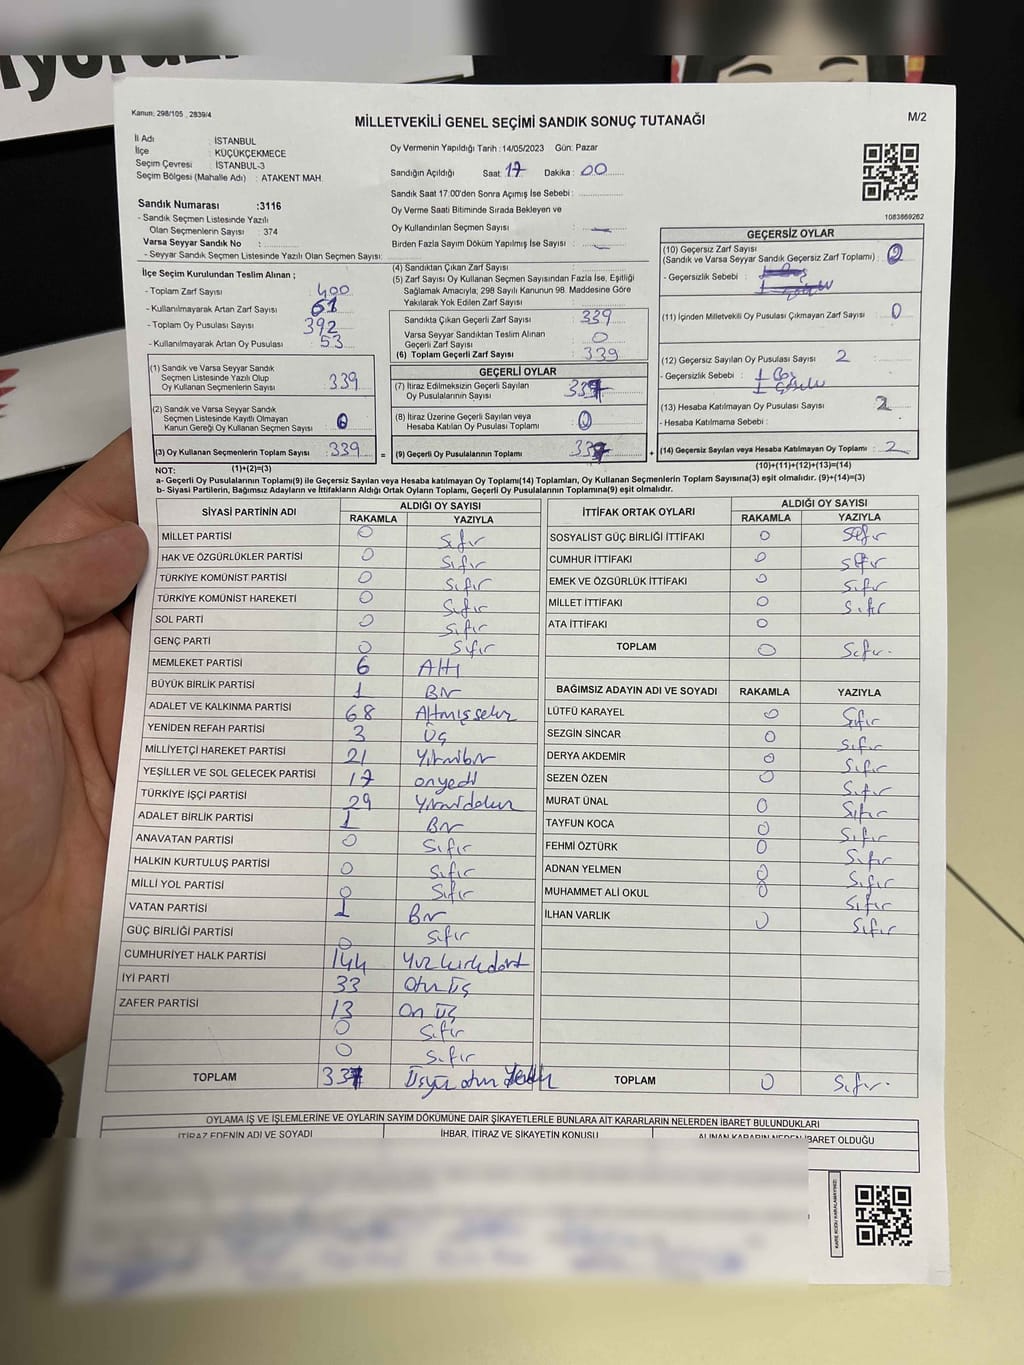 Kanun: 298/105 , 2839/4
MİLLETVEKİLİ GENEL SEÇİMİ SANDIK SONUÇ TUTANAĞI
M/2
İl Adı : İSTANBUL
İlçe : KÜÇÜKÇEKMECE
Seçim Çevresi : İSTANBUL-3
Seçim Bölgesi (Mahalle Adı) : ATAKENT MAH.
Sandık Numarası :3116
- Sandık Seçmen Listesinde Yazılı
Olan Seçmenlerin Sayısı : 374
Varsa Seyyar Sandık No :
- Seyyar Sandık Seçmen Listesinde Yazılı Olan Seçmen Sayısı:
Oy Vermenin Yapıldığı Tarih : 14/05/2023 Gün: Pazar
Sandığın Açıldığı Saat: 17 Dakika : 00
Sandık Saat 17.00'den Sonra Açılmış İse Sebebi :
Oy Verme Saati Bitiminde Sırada Bekleyen ve
Oy Kullandırılan Seçmen Sayısı : —
Birden Fazla Sayım Döküm Yapılmış İse Sayısı : —
1083869262
İlçe Seçim Kurulundan Teslim Alınan ;
- Toplam Zarf Sayısı : 400
- Kullanılmayarak Artan Zarf Sayısı : 61
- Toplam Oy Pusulası Sayısı : 392
- Kullanılmayarak Artan Oy Pusulası : 53
(1) Sandık ve Varsa Seyyar Sandık
Seçmen Listesinde Yazılı Olup
Oy Kullanan Seçmenlerin Sayısı : 339
(2) Sandık ve Varsa Seyyar Sandık
Seçmen Listesinde Kayıtlı Olmayan
Kanun Gereği Oy Kullanan Seçmen Sayısı : 0
(3) Oy Kullanan Seçmenlerin Toplam Sayısı : 339 =
(4) Sandıktan Çıkan Zarf Sayısı :
(5) Zarf Sayısı Oy Kullanan Seçmen Sayısından Fazla İse, Eşitliği
Sağlamak Amacıyla; 298 Sayılı Kanunun 98. Maddesine Göre
Yakılarak Yok Edilen Zarf Sayısı :
Sandıkta Çıkan Geçerli Zarf Sayısı : 339
Varsa Seyyar Sandıktan Teslim Alınan
Geçerli Zarf Sayısı : 0
(6) Toplam Geçerli Zarf Sayısı : 339
GEÇERLİ OYLAR
(7) İtiraz Edilmeksizin Geçerli Sayılan
Oy Pusulalarının Sayısı : 337
(8) İtiraz Üzerine Geçerli Sayılan veya
Hesaba Katılan Oy Pusulası Toplamı : 0
(9) Geçerli Oy Pusulalarının Toplamı : 337 +
GEÇERSİZ OYLAR
(10) Geçersiz Zarf Sayısı
(Sandık ve Varsa Seyyar Sandık Geçersiz Zarf Toplamı) : 0
- Geçersizlik Sebebi :
(11) İçinden Milletvekili Oy Pusulası Çıkmayan Zarf Sayısı : 0
(12) Geçersiz Sayılan Oy Pusulası Sayısı 2
- Geçersizlik Sebebi : 1 Boş
1
(13) Hesaba Katılmayan Oy Pusulası Sayısı 2
- Hesaba Katılmama Sebebi :
(14) Geçersiz Sayılan veya Hesaba Katılmayan Oy Toplamı : 2
NOT: (1)+(2)=(3)
(10)+(11)+(12)+(13)=(14)
a- Geçerli Oy Pusulalarının Toplamı(9) ile Geçersiz Sayılan veya Hesaba katılmayan Oy Toplamı(14) Toplamları, Oy Kullanan Seçmenlerin Toplam Sayısına(3) eşit olmalıdır. (9)+(14)=(3)
b- Siyasi Partilerin, Bağımsız Adayların ve İttifakların Aldığı Ortak Oyların Toplamı, Geçerli Oy Pusulalarının Toplamına(9) eşit olmalıdır.
SİYASİ PARTİNİN ADI ALDIĞI OY SAYISI
RAKAMLA YAZIYLA
MİLLET PARTİSİ 0 Sıfır
HAK VE ÖZGÜRLÜKLER PARTİSİ 0 Sıfır
TÜRKİYE KOMÜNİST PARTİSİ 0 Sıfır
TÜRKİYE KOMÜNİST HAREKETİ 0 Sıfır
SOL PARTİ 0 Sıfır
GENÇ PARTİ 0 Sıfır
MEMLEKET PARTİSİ 6 Altı
BÜYÜK BİRLİK PARTİSİ 1 Bir
ADALET VE KALKINMA PARTİSİ 68 Altmışsekiz
YENİDEN REFAH PARTİSİ 3 Üç
MİLLİYETÇİ HAREKET PARTİSİ 21 Yirmibir
YEŞİLLER VE SOL GELECEK PARTİSİ 17 onyedi
TÜRKİYE İŞÇİ PARTİSİ 29 Yirmidokuz
ADALET BİRLİK PARTİSİ 1 Bir
ANAVATAN PARTİSİ 0 Sıfır
HALKIN KURTULUŞ PARTİSİ 0 Sıfır
MİLLİ YOL PARTİSİ 0 Sıfır
VATAN PARTİSİ 1 Bir
GÜÇ BİRLİĞİ PARTİSİ 0 Sıfır
CUMHURİYET HALK PARTİSİ 144 Yüzkırkdört
İYİ PARTİ 33 Otuz üç
ZAFER PARTİSİ 13 On üç
0 Sıfır
0 Sıfır
TOPLAM 337 Üçyüz otuz Yedi
İTTİFAK ORTAK OYLARI ALDIĞI OY SAYISI
RAKAMLA YAZIYLA
SOSYALİST GÜÇ BİRLİĞİ İTTİFAKI 0 Sıfır
CUMHUR İTTİFAKI 0 Sıfır
EMEK VE ÖZGÜRLÜK İTTİFAKI 0 Sıfır
MİLLET İTTİFAKI 0 Sıfır
ATA İTTİFAKI 0
TOPLAM 0 Sıfır.
BAĞIMSIZ ADAYIN ADI VE SOYADI RAKAMLA YAZIYLA
LÜTFÜ KARAYEL 0 Sıfır
SEZGİN SİNCAR 0 Sıfır
DERYA AKDEMİR 0 Sıfır
SEZEN ÖZEN 0 Sıfır
MURAT ÜNAL 0 Sıfır
TAYFUN KOCA 0 Sıfır
FEHMİ ÖZTÜRK 0 Sıfır
ADNAN YELMEN 0 Sıfır
MUHAMMET ALİ OKUL 0 Sıfır
İLHAN VARLIK 0 Sıfır
TOPLAM 0 Sıfır.
OYLAMA İŞ VE İŞLEMLERİNE VE OYLARIN SAYIM DÖKÜMÜNE DAİR ŞİKAYETLERLE BUNLARA AİT KARARLARIN NELERDEN İBARET BULUNDUKLARI
İTİRAZ EDENİN ADI VE SOYADI İHBAR, İTİRAZ VE ŞİKAYETİN KONUSU ALINAN KARARIN NEDEN İBARET OLDUĞU
KARE KODU KARALAMAYINIZ!